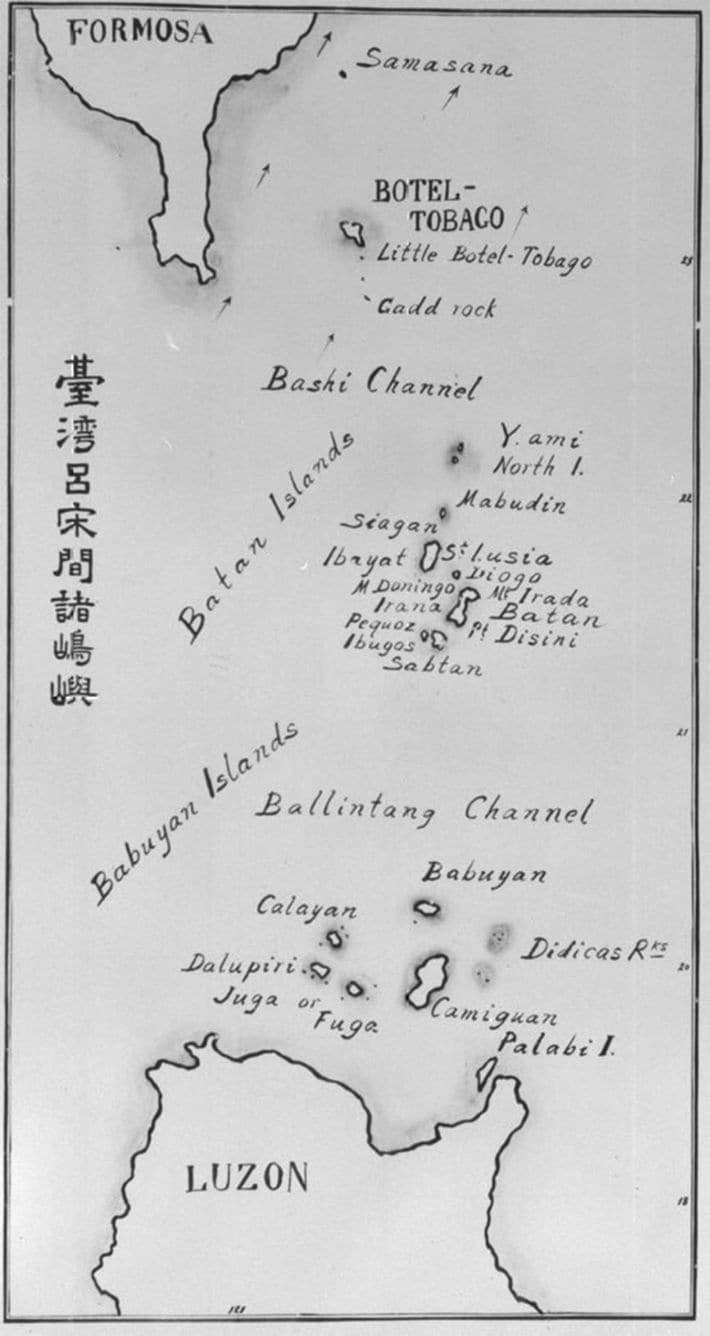 FORMOSA
Samasana
BOTEL-
TOBAGO
Little Botel-Tobago
Gadd rock
Bashi Channel
臺湾呂宋間諸嶋嶼
Batan Islands
Y. ami
North I.
Mabudin
Siagan
Ibayat
St. Lusia
Diogo
M Domingo
Mt Irada
Irana
Batan
Pequoz
Pt Disini
Ibugos
Sabtan
21
Babuyan Islands
Ballintang Channel
Babuyan
Calayan
Didicas Rks
Dalupiri
20
Juga or
Fuga
Camiguan
Palabi I.
LUZON
18
121